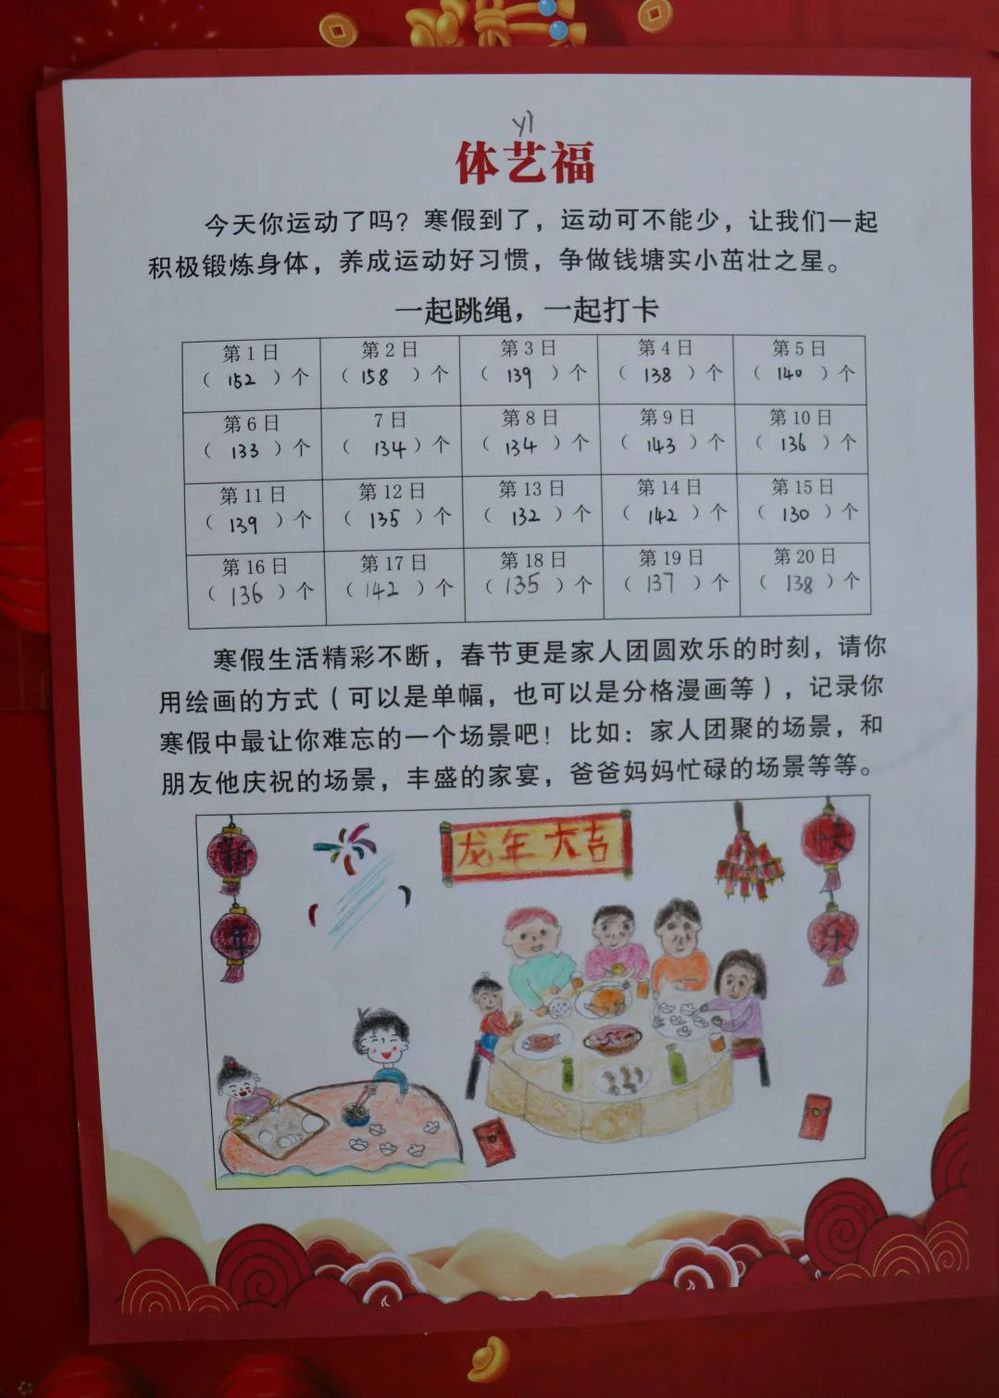 yì
体艺福
今天你运动了吗？寒假到了，运动可不能少，让我们一起
积极锻炼身体，养成运动好习惯，争做钱塘实小茁壮之星。
一起跳绳，一起打卡
第1日 第2日 第3日 第4日 第5日
（152）个 （158）个 （139）个 （138）个 （140）个
第6日 7日 第8日 第9日 第10日
（133）个 （134）个 （134）个 （143）个 （136）个
第11日 第12日 第13日 第14日 第15日
（139）个 （135）个 （132）个 （142）个 （130）个
第16日 第17日 第18日 第19日 第20日
（136）个 （142）个 （135）个 （137）个 （138）个
寒假生活精彩不断，春节更是家人团圆欢乐的时刻，请你
用绘画的方式（可以是单幅，也可以是分格漫画等），记录你
寒假中最让你难忘的一个场景吧！比如：家人团聚的场景，和
朋友他庆祝的场景，丰盛的家宴，爸爸妈妈忙碌的场景等等。
龙年大吉
新
年
快
乐